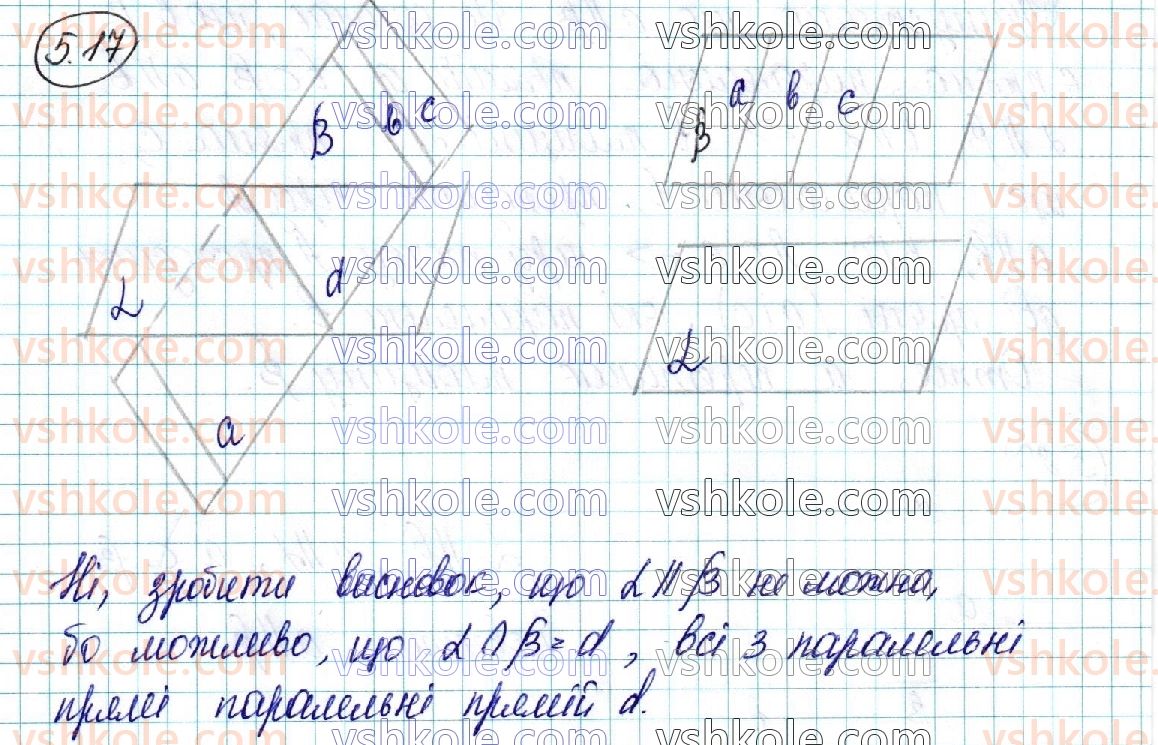 5.17
β в с
β а в с
α d
α
а
Ні, зробити висновок, що α || β не можна,
бо можливо, що α ∩ β = d, всі 3 паралельні
прямі паралельні прямій d.
vshkole.com